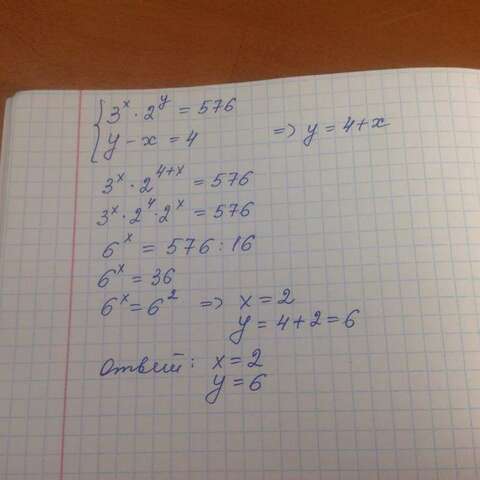 { 3ˣ · 2ʸ = 576
y – x = 4 => y = 4+x
3ˣ · 2⁴⁺ˣ = 576
3ˣ · 2⁴ · 2ˣ = 576
6ˣ = 576 : 16
6ˣ = 36
6ˣ = 6² => x = 2
y = 4+2 = 6
Ответ: x = 2
y = 6